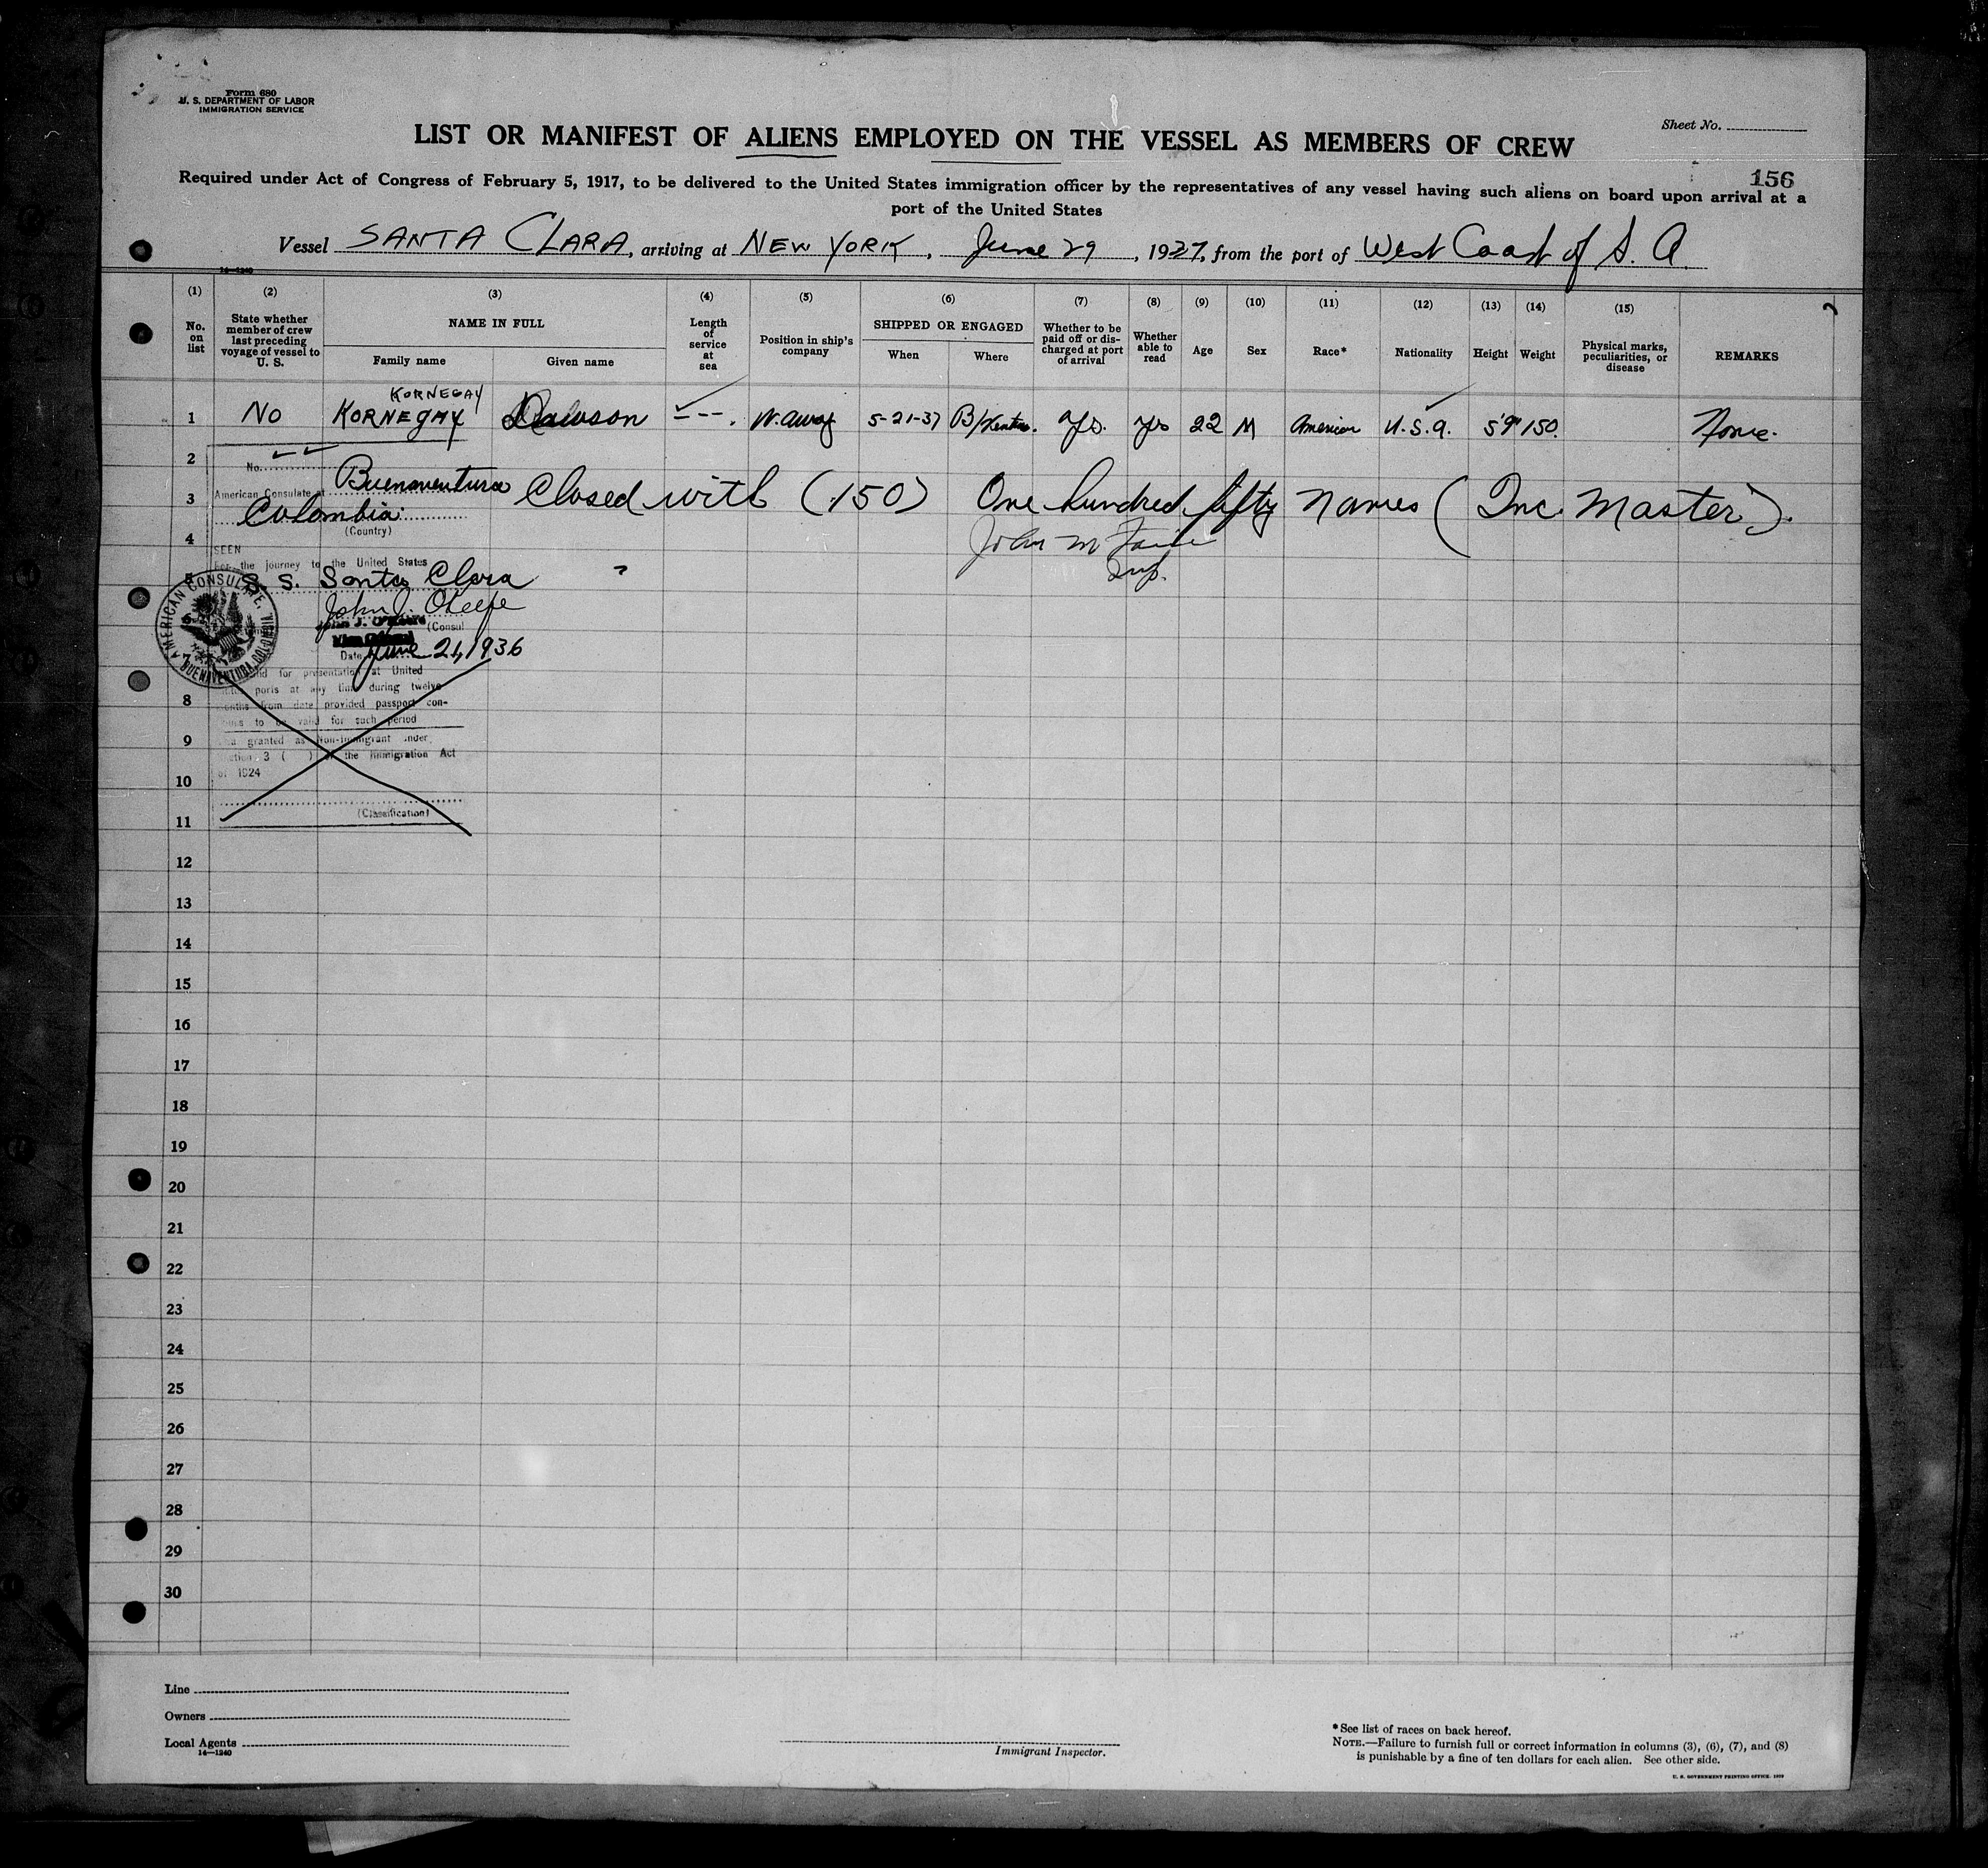 Form 680
U. S. DEPARTMENT OF LABOR
IMMIGRATION SERVICE
Sheet No.
LIST OR MANIFEST OF ALIENS EMPLOYED ON THE VESSEL AS MEMBERS OF CREW
156
Required under Act of Congress of February 5, 1917, to be delivered to the United States immigration officer by the representatives of any vessel having such aliens on board upon arrival at a
port of the United States
Vessel SANTA CLARA, arriving at NEW YORK, June 29, 1937, from the port of West Coast of S. A.
14—1240
(1) (2) (3) (4) (5) (6) (7) (8) (9) (10) (11) (12) (13) (14) (15)
No. on list
State whether member of crew last preceding voyage of vessel to U. S.
NAME IN FULL
Family name Given name
Length of service at sea
Position in ship's company
SHIPPED OR ENGAGED
When Where
Whether to be paid off or discharged at port of arrival
Whether able to read
Age
Sex
Race*
Nationality
Height
Weight
Physical marks, peculiarities, or disease
REMARKS
KORNEGAY
1 No KORNEGAY Dawson ---. W. away 5-21-37 Yes. Yes 22 M American U.S.A. 5'9" 150. None.
2
No.
3
American Consulate at Buenaventura
Closed with (150) One hundred fifty names (Inc. Master).
Colombia
(Country)
4
John M
Insp.
SEEN
For the journey to the United States
5
S. S. Santa Clara
John J. O'Keefe
John J. O'Keefe
(Consul
Vice Consul
Date June 21, 1936
AMERICAN CONSULATE, BUENAVENTURA, COLOMBIA
6
7
for presentation at United
ports at any time during twelve
8
months from date provided passport con-
to be valid for such period
9
granted as Non-immigrant under
Section 3 ( ) of the Immigration Act
of 1924
10
(Classification)
11
12
13
14
15
16
17
18
19
20
21
22
23
24
25
26
27
28
29
30
Line
Owners
Local Agents
14—1240
Immigrant Inspector.
*See list of races on back hereof.
NOTE.—Failure to furnish full or correct information in columns (3), (6), (7), and (8)
is punishable by a fine of ten dollars for each alien. See other side.
U. S. GOVERNMENT PRINTING OFFICE